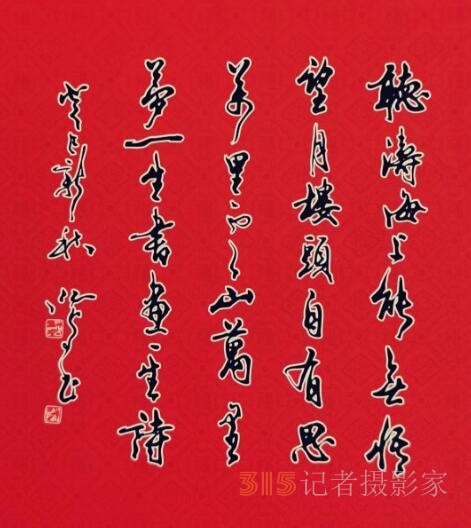 聽濤海上能無悟
望月樓頭自有思
萬里河山萬里
夢一生書畫一生詩
癸巳新秋
315记者摄影家